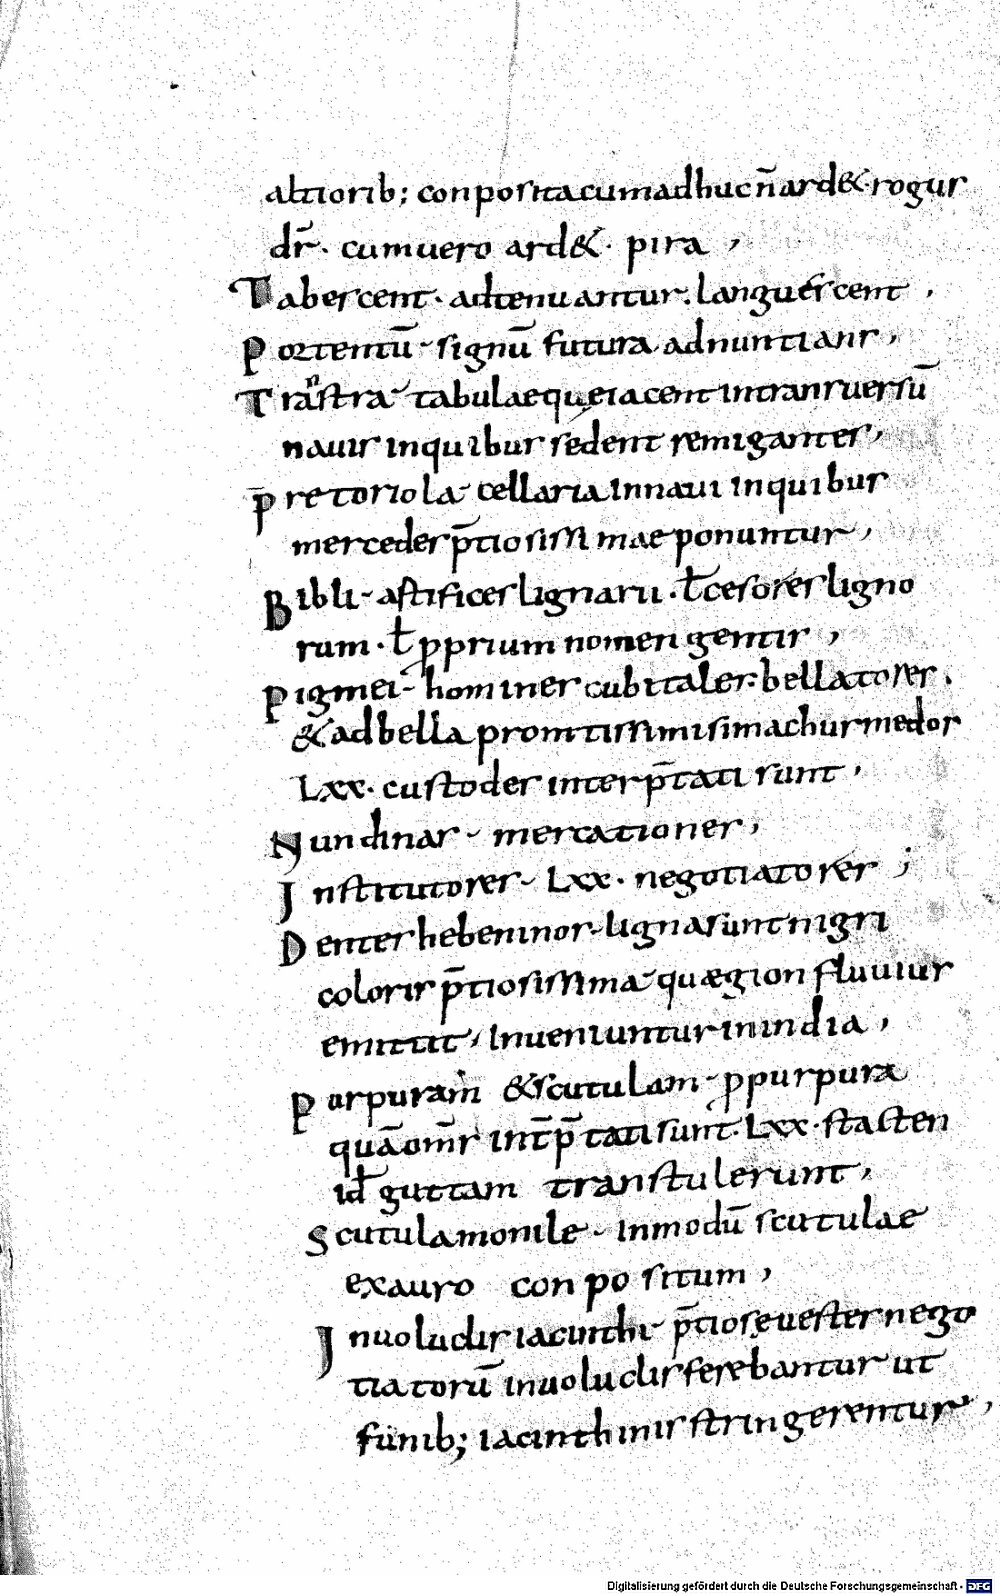 altiorib; conposita cum adhuc n̄ ard& rogus
dr̄. cum uero ard&. pira ,
Tabescent. adtenuantur. languescent ,
Portentū- signū futura adnuntians ,
Transtra- tabulae quę iacent in transuersū
nauis in quibus sedent remigantes ,
P̄retoriola- cellaria in naui in quibus
mercedes p̄tiosissimae ponuntur ,
Bibli- astifices lignarii. ł cesores ligno
rum. ł pprium nomen gentis ,
Pigmei- homines cubitales. bellatores.
& ad bella promtissimi simachus medos
Lxx. custodes interp̄tati sunt ,
Nundinas- mercationes ,
Institutores- Lxx. negotiatores ;
Dentes hebeninos- ligna sunt nigri
coloris p̄tiosissima- quæ gion fluuius
emittit, Inueniuntur in india ,
Purpuram &scutulam- ppurpura
quā om̄s int̄p̄tati sunt. Lxx. stacten
id̄ guttam transtulerunt ,
Scutula monile- in modū scutulae
ex auro conpositum ,
Inuolucris iacinthi- p̄tiosę uestes nego
tiatorū inuolucris ferebantur ut
funib; iacinthinis stringerentur ,
Digitalisierung gefördert durch die Deutsche Forschungsgemeinschaft - DFG